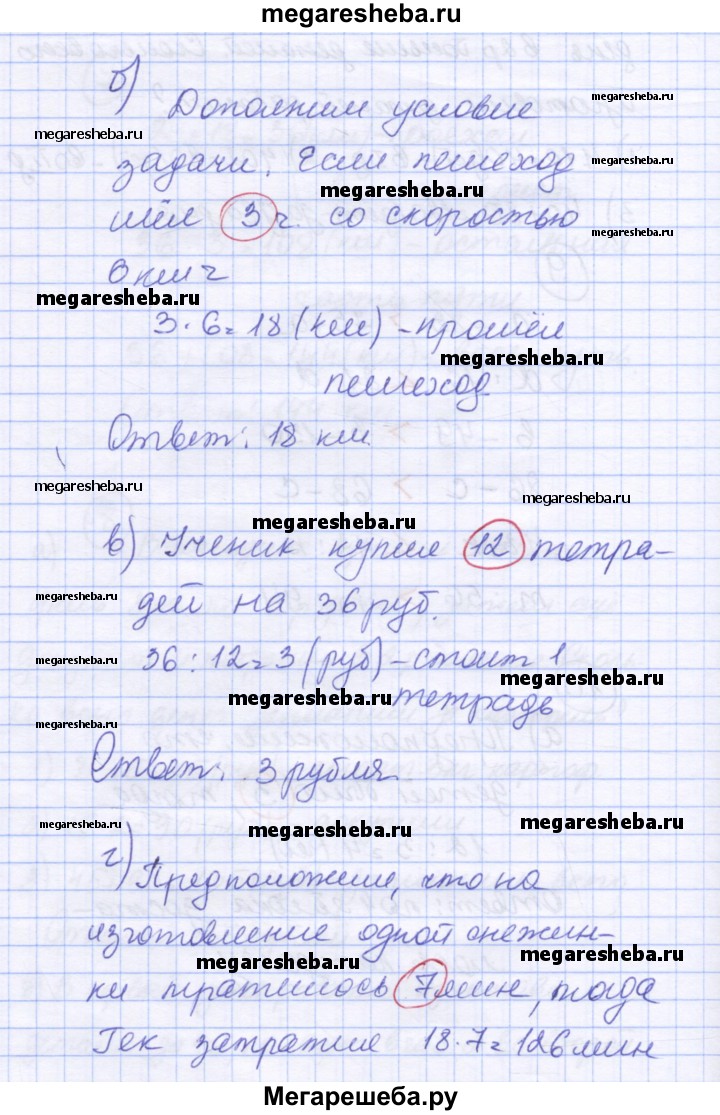 megaresheba.ru
б)
Дополним условие
megaresheba.ru
megaresheba.ru
задачи. Если пешеход
megaresheba.ru
megaresheba.ru
шёл 3 ч. со скоростью
megaresheba.ru
6 км ч
megaresheba.ru
3 · 6 = 18 (км) - прошёл
megaresheba.ru
пешеход
Ответ: 18 км.
megaresheba.ru
megaresheba.ru
megaresheba.ru
в) Ученик купил 12 тетра-
megaresheba.ru
дей на 36 руб.
megaresheba.ru
36 : 12 = 3 (руб) - стоит 1
megaresheba.ru
megaresheba.ru
тетрадь
megaresheba.ru
Ответ: 3 рубля.
megaresheba.ru
megaresheba.ru
megaresheba.ru
г) Предположим, что на
изготовление одной снежин-
megaresheba.ru
megaresheba.ru
ки тратилось 7 мин, тогда
Гек затратил 18 · 7 = 126 мин
Мегарешеба.ру